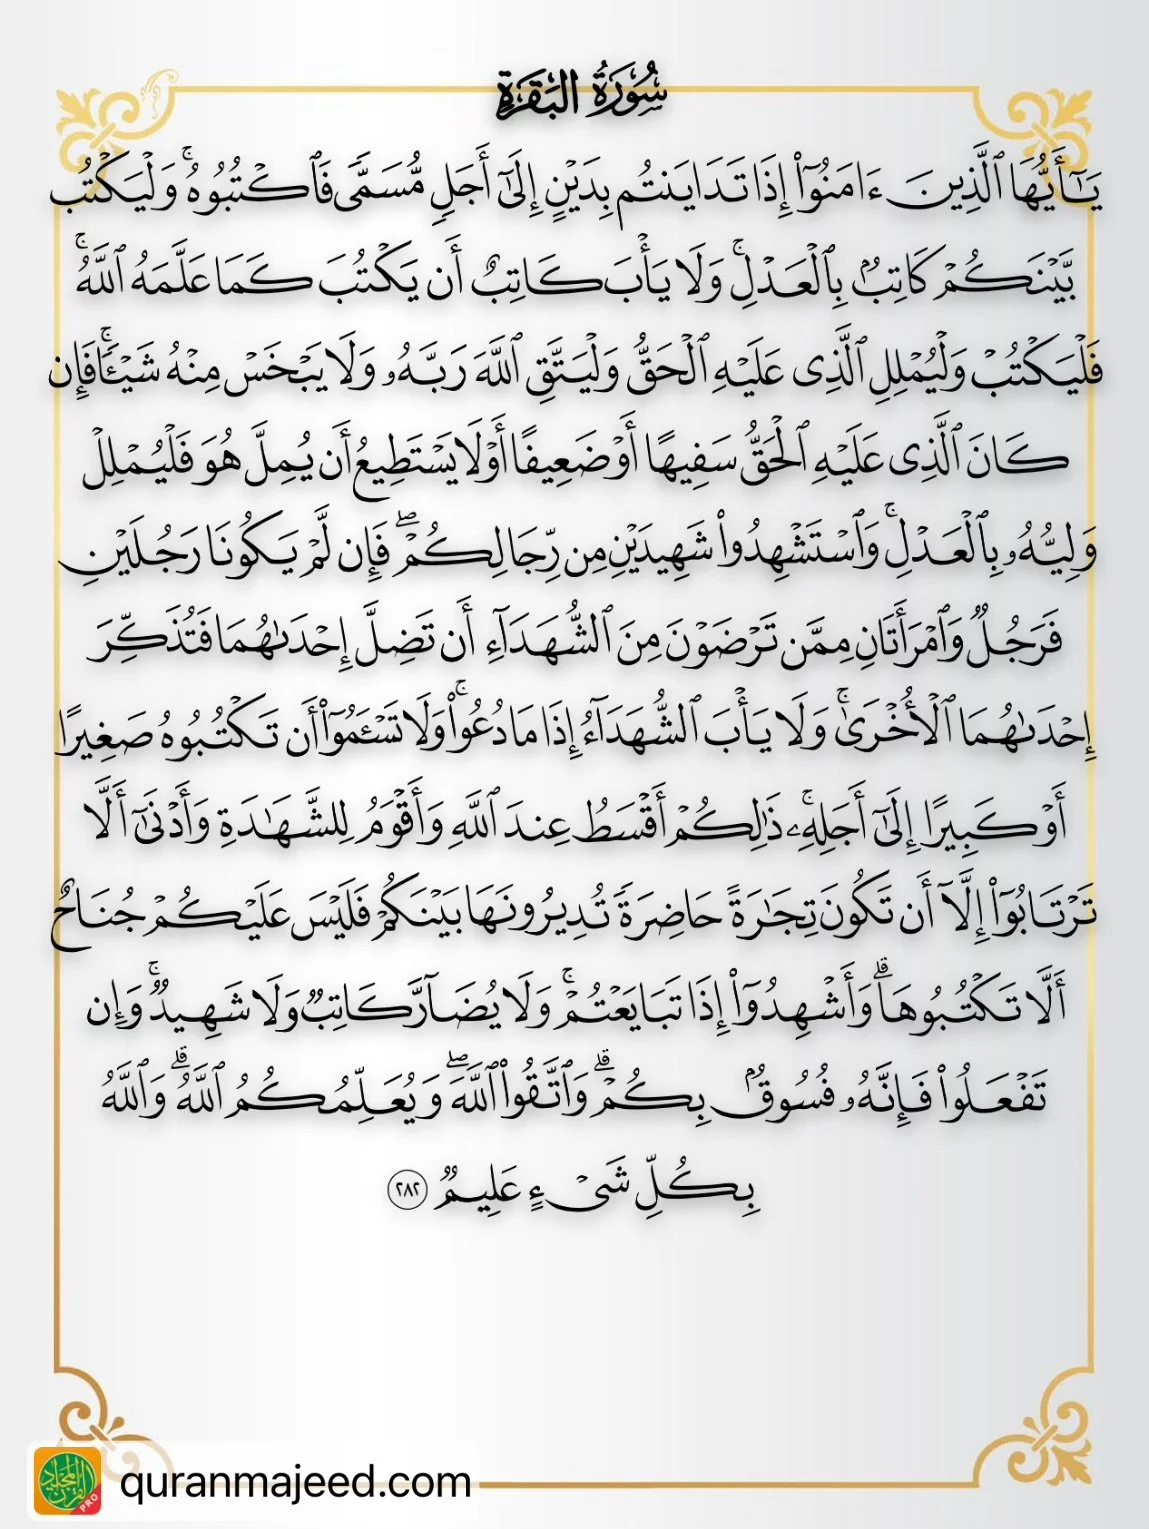 سُورَةُ البَقَرَةِ
يَـٰٓأَيُّهَا ٱلَّذِينَ ءَامَنُوٓا۟ إِذَا تَدَايَنتُم بِدَيْنٍ إِلَىٰٓ أَجَلٍ مُّسَمًّى فَٱكْتُبُوهُ ۚ وَلْيَكْتُب
بَّيْنَكُمْ كَاتِبٌۢ بِٱلْعَدْلِ ۚ وَلَا يَأْبَ كَاتِبٌ أَن يَكْتُبَ كَمَا عَلَّمَهُ ٱللَّهُ ۚ
فَلْيَكْتُبْ وَلْيُمْلِلِ ٱلَّذِى عَلَيْهِ ٱلْحَقُّ وَلْيَتَّقِ ٱللَّهَ رَبَّهُۥ وَلَا يَبْخَسْ مِنْهُ شَيْـًٔا ۚ فَإِن
كَانَ ٱلَّذِى عَلَيْهِ ٱلْحَقُّ سَفِيهًا أَوْ ضَعِيفًا أَوْ لَا يَسْتَطِيعُ أَن يُمِلَّ هُوَ فَلْيُمْلِلْ
وَلِيُّهُۥ بِٱلْعَدْلِ ۚ وَٱسْتَشْهِدُوا۟ شَهِيدَيْنِ مِن رِّجَالِكُمْ ۖ فَإِن لَّمْ يَكُونَا رَجُلَيْنِ
فَرَجُلٌ وَٱمْرَأَتَانِ مِمَّن تَرْضَوْنَ مِنَ ٱلشُّهَدَآءِ أَن تَضِلَّ إِحْدَىٰهُمَا فَتُذَكِّرَ
إِحْدَىٰهُمَا ٱلْأُخْرَىٰ ۚ وَلَا يَأْبَ ٱلشُّهَدَآءُ إِذَا مَا دُعُوا۟ ۚ وَلَا تَسْـَٔمُوٓا۟ أَن تَكْتُبُوهُ صَغِيرًا
أَوْ كَبِيرًا إِلَىٰٓ أَجَلِهِۦ ۚ ذَٰلِكُمْ أَقْسَطُ عِندَ ٱللَّهِ وَأَقْوَمُ لِلشَّهَـٰدَةِ وَأَدْنَىٰٓ أَلَّا
تَرْتَابُوٓا۟ إِلَّآ أَن تَكُونَ تِجَـٰرَةً حَاضِرَةً تُدِيرُونَهَا بَيْنَكُمْ فَلَيْسَ عَلَيْكُمْ جُنَاحٌ
أَلَّا تَكْتُبُوهَا ۗ وَأَشْهِدُوٓا۟ إِذَا تَبَايَعْتُمْ ۚ وَلَا يُضَآرَّ كَاتِبٌ وَلَا شَهِيدٌ ۚ وَإِن
تَفْعَلُوا۟ فَإِنَّهُۥ فُسُوقٌۢ بِكُمْ ۗ وَٱتَّقُوا۟ ٱللَّهَ ۖ وَيُعَلِّمُكُمُ ٱللَّهُ ۗ وَٱللَّهُ
بِكُلِّ شَىْءٍ عَلِيمٌ ٢٨٢
القرآن المجيد
PRO
quranmajeed.com